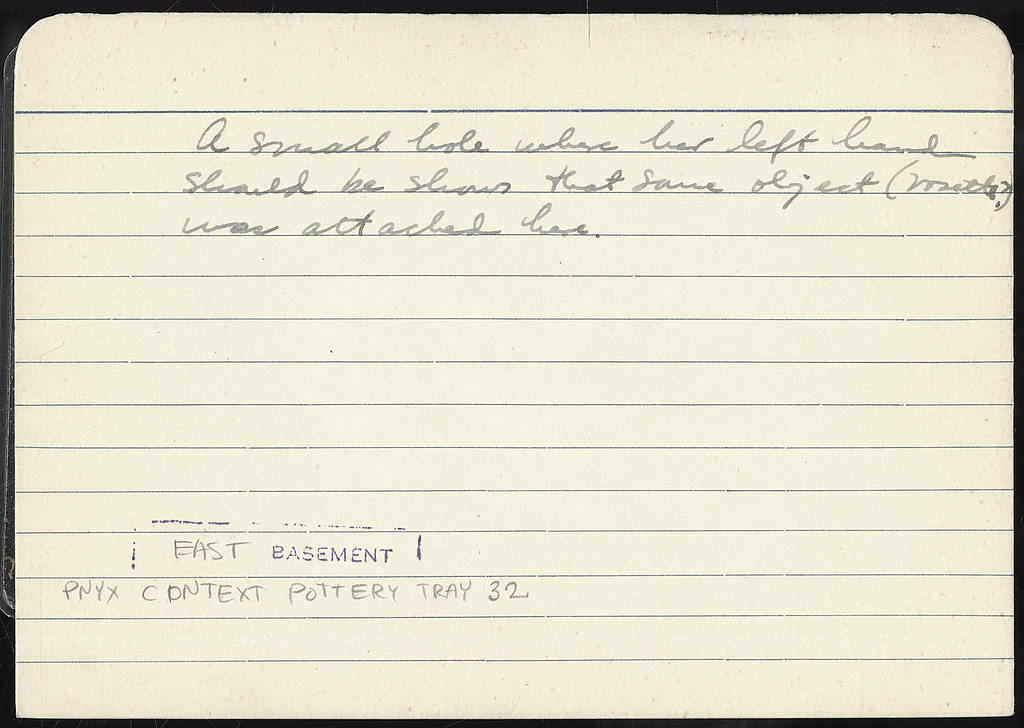 A small hole where her left hand
should be shows that some object (rosette?)
was attached here.
EAST BASEMENT
PNYX CONTEXT POTTERY TRAY 32